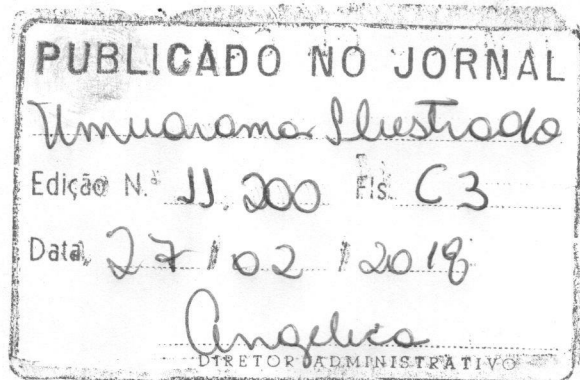 PUBLICADO NO JORNAL
Umuarama Ilustrado
Edição N.º 11.200 Fls. C3
Data, 27/02/2018
Angelica
DIRETOR ADMINISTRATIVO